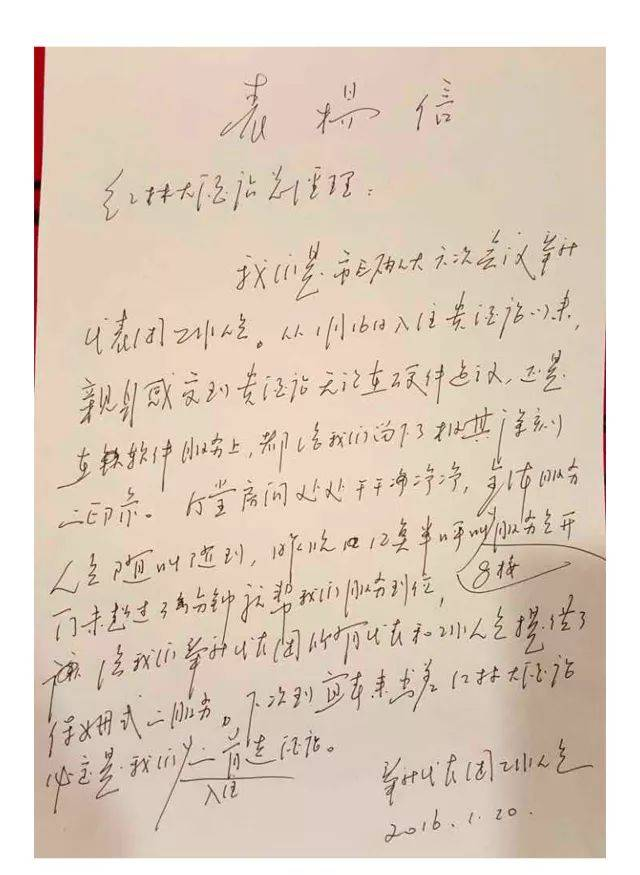 表扬信
红林大酒店总经理：
我们是市五届人大六次会议筠
代表团工作人员。从1月16日入住贵酒店以来，
亲身感受到贵酒店无论在硬件建设，还是
在软件服务上，都给我们留下了极其深刻
的印象。厅堂房间处处干干净净，全体服务
人员随叫随到，昨晚12点半呼叫服务员开
8楼
门未超过3分钟就帮我们服务到位，
给我们代表团所有代表和工作人员提供了
保姆式的服务。下次到宜宾来出差红林大酒店
必定是我们的首选酒店。
入住
代表团工作人员
2016.1.20.